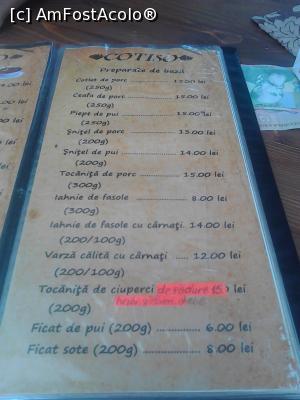 [c] AmFostAcolo®
COTISO
Preparate de bază
Cotlet de porc 15.00 lei
(250g)
Ceafa de porc 15.00 lei
(250g)
Piept de pui 15.00 lei
(250g)
Şniţel de porc 15.00 lei
(200g)
Şniţel de pui 14.00 lei
(200g)
Tocăniţă de porc 15.00 lei
(300g)
Iahnie de fasole 8.00 lei
(300g)
Iahnie de fasole cu cârnaţi. 14.00 lei
(200/100g)
Varză călită cu cârnaţi 12.00 lei
(200/100g)
Tocăniţă de ciuperci de padure 15 lei
(200g)
Ficat de pui (200g) 6.00 lei
Ficat sote (200g) 8.00 lei